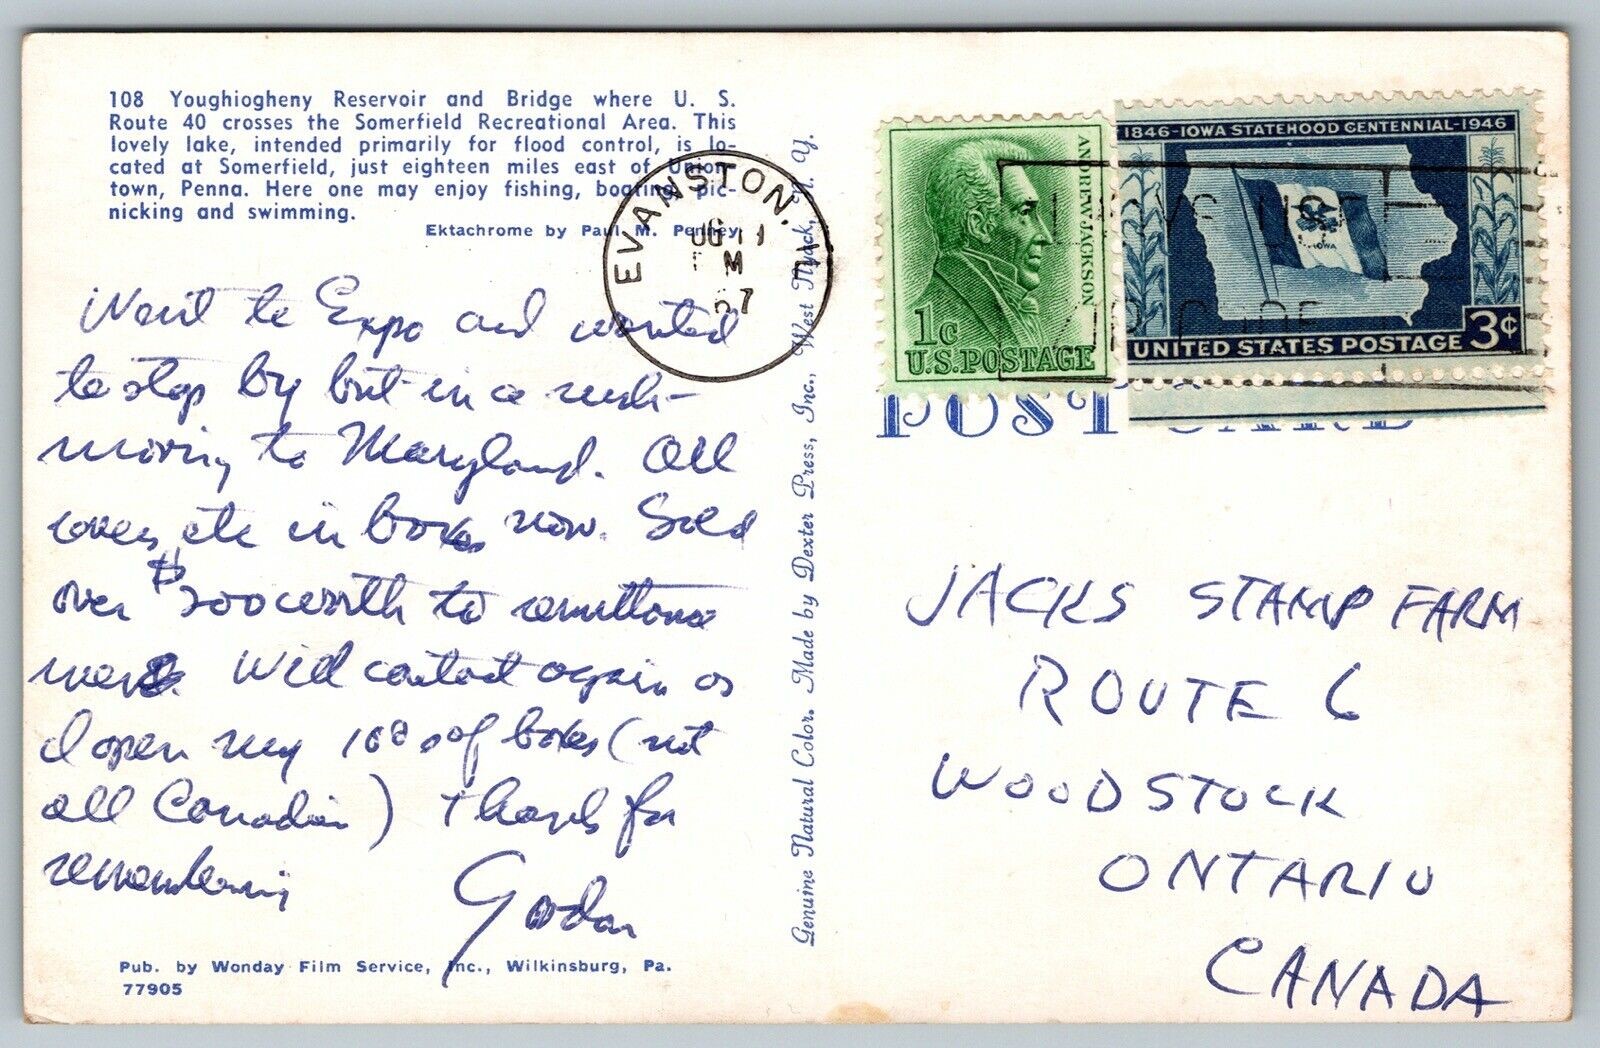 108 Youghiogheny Reservoir and Bridge where U. S.
Route 40 crosses the Somerfield Recreational Area. This
lovely lake, intended primarily for flood control, is lo-
cated at Somerfield, just eighteen miles east of Union-
town, Penna. Here one may enjoy fishing, boating, pic-
nicking and swimming.
Ektachrome by Paul M. Penney
Went to Expo and wanted
to stop by but in a rush-
moving to Maryland. All
covers etc in boxes now. Sold
over $200 worth to
Will contact again as
I open my 100s of boxes (not
all Canadian) Thanks for
remembering
Gordon
Pub. by Wonday Film Service, Inc., Wilkinsburg, Pa.
77905
Genuine Natural Color. Made by Dexter Press, Inc., West Nyack, N. Y.
EVANSTON,
11
M
67
ANDREW JACKSON
1c
U.S. POSTAGE
1846-IOWA STATEHOOD CENTENNIAL-1946
IOWA
3¢
UNITED STATES POSTAGE
USE
ZIP CODE
POST CARD
JACKS STAMP FARM
ROUTE 6
WOODSTOCK
ONTARIO
CANADA